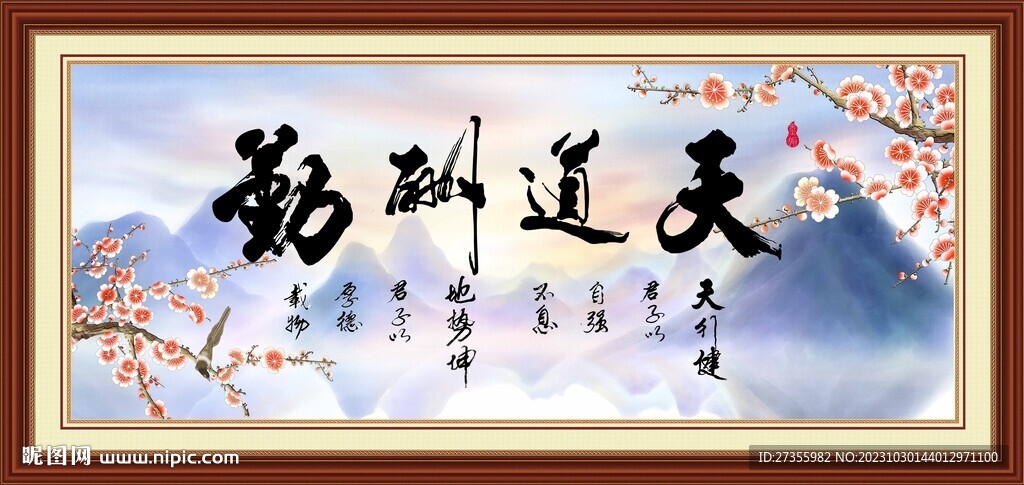 天道酬勤
天行健
君子以
自强
不息
地势坤
君子以
厚德
载物
昵图网 www.nipic.com
ID:27355982 NO:20231030144012971100